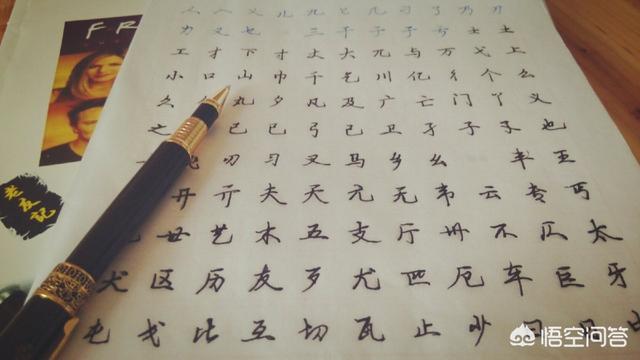 FR
老友記
人 人 义 儿 九 匕 几 习 了 乃 刀
力 又 也 三 干 于 亏 士 土
工 才 下 寸 丈 大 兀 与 万 弋 上
小 口 山 巾 千 乞 川 亿 彳 个 么
久 丸 夕 凡 及 广 亡 门 丫 义
之 已 巳 弓 己 卫 孑 子 孓 也
飞 刃 习 叉 马 乡 幺 丰 王
井 亓 夫 天 元 无 韦 云 专 丐
廿 艺 木 五 支 厅 卅 不 仄 太
犬 区 历 友 歹 尤 匹 厄 车 巨 牙
屯 戈 比 互 切 瓦 止 少 曰
悟空问答